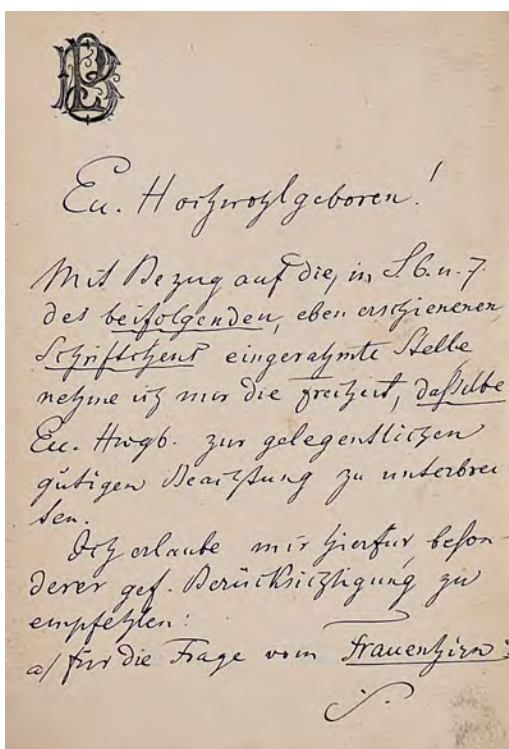 Eu. Hochwohlgeboren!
Mit Bezug auf die, in S 6. u. 7.
des beifolgenden, eben erschienenen
Schriftchens eingerahmte Stelle
nehme ich mir die Freiheit, dasselbe
Eu. Hwgb. zur gelegentlichen
gütigen Beachtung zu unterbrei
ten.
Ich erlaube mir hierfür, beson-
derer gef. Berücksichtigung zu
empfehlen:
a/ für die Frage vom Frauenhirn: